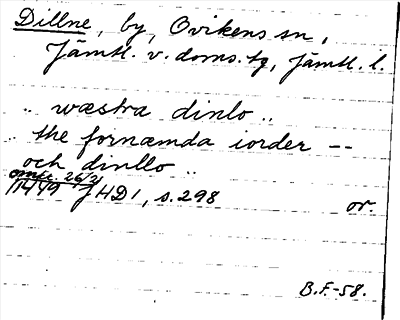 Dillne, by, Ovikens sn,
Jämtl. v. doms. tg, Jämtl. l.
.. wæstra dinlo ..
.. the fornæmda iorder --
och dinllo ..
omkr. 26/2
1479 JHD 1, s. 298 or.
B.F.-58.